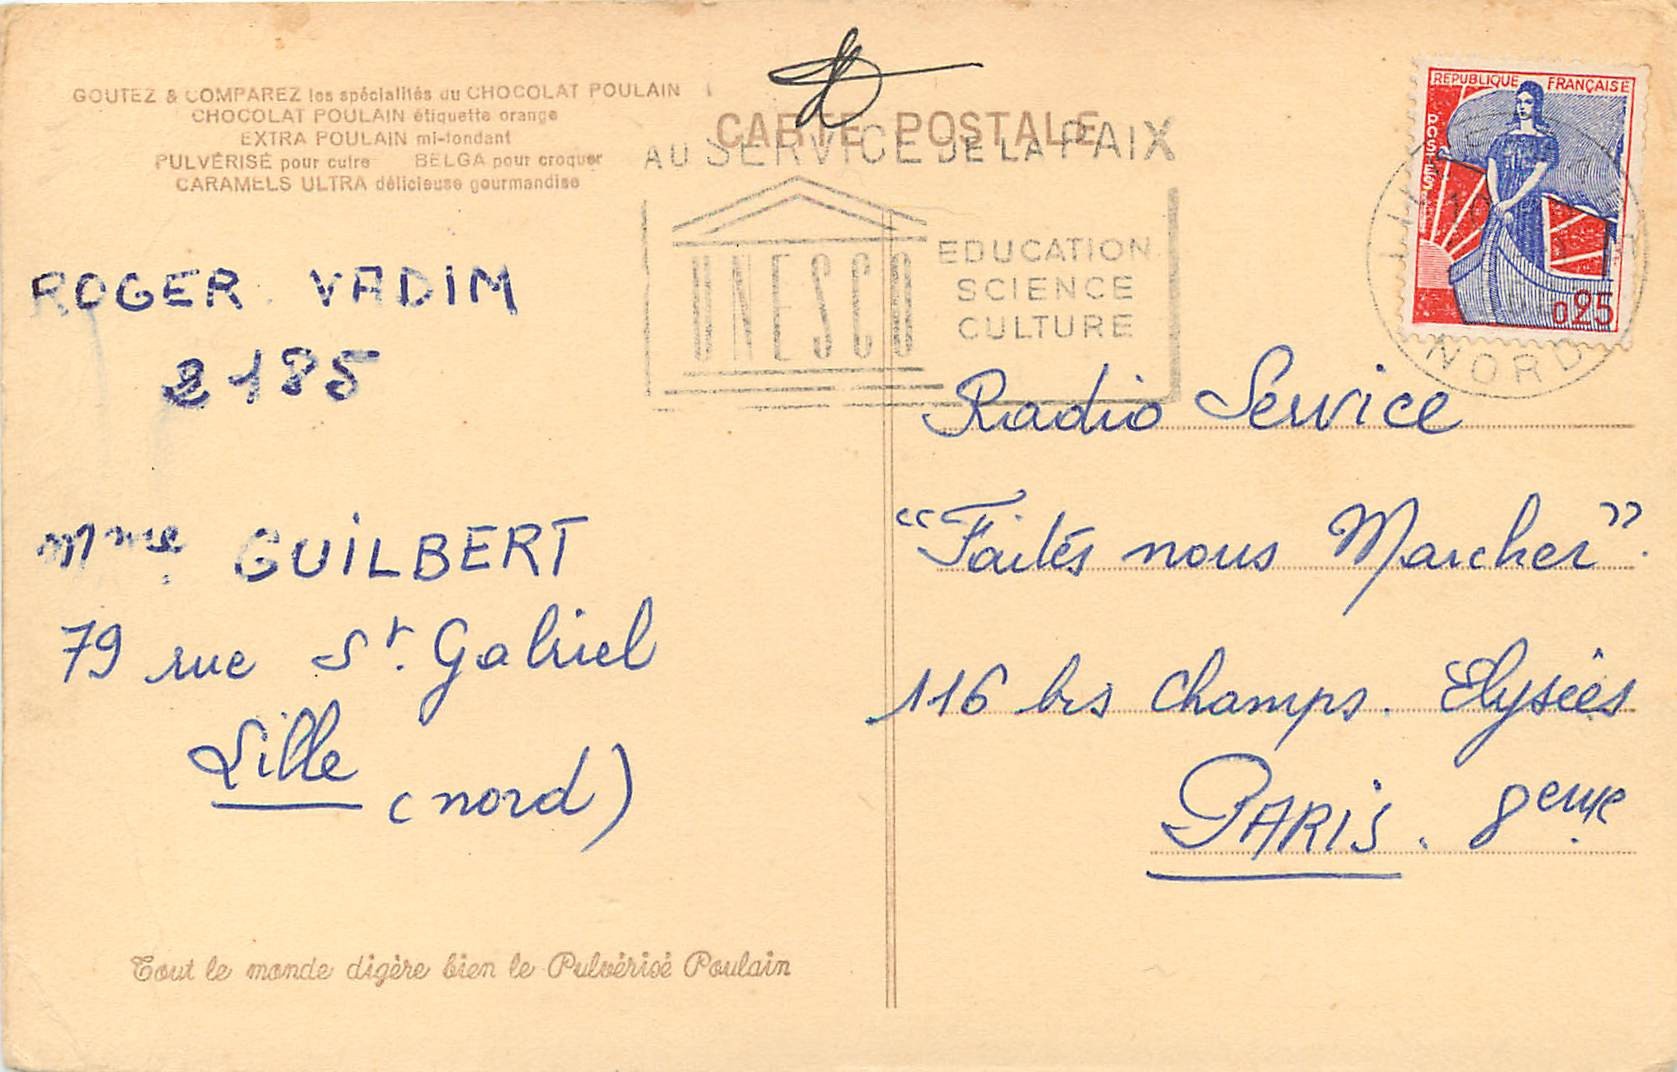 GOUTEZ & COMPAREZ les spécialités du CHOCOLAT POULAIN
CHOCOLAT POULAIN étiquette orange
EXTRA POULAIN mi-fondant
PULVÉRISÉ pour cuire BELGA pour croquer
CARAMELS ULTRA délicieuse gourmandise
CARTE POSTALE
AU SERVICE DE LA PAIX
UNESCO
EDUCATION
SCIENCE
CULTURE
REPUBLIQUE FRANÇAISE
POSTES
0,25
NORD
ROGER VADIM
2185
Mme GUILBERT
79 rue St. Gabriel
Lille
(nord)
Radio Service
"Faites nous Marcher".
116 bis Champs. Elysées
PARIS. 8eme
Tout le monde digère bien le Pulvérisé Poulain